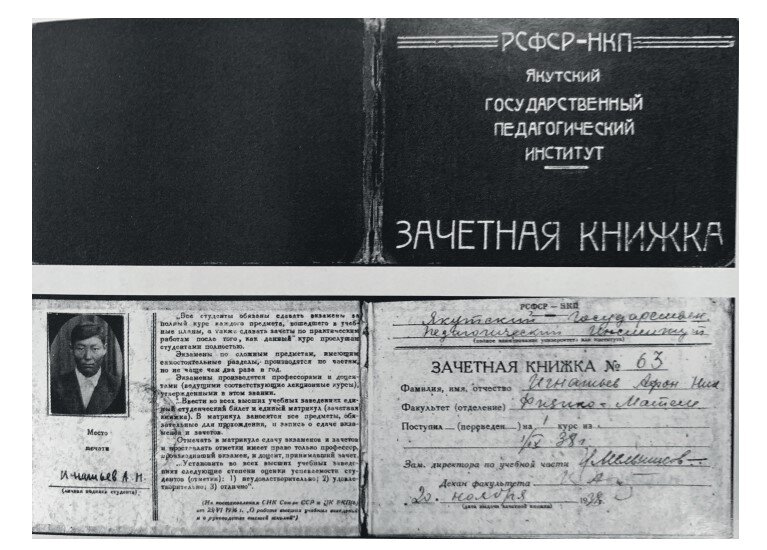 РСФСР-НКП
ЯКУТСКИЙ
ГОСУДАРСТВЕННЫЙ
ПЕДАГОГИЧЕСКИЙ
ИНСТИТУТ
ЗАЧЕТНАЯ КНИЖКА
Место
печати
Игнатьев А. Н.
(личная подпись студента)
„Все студенты обязаны сдавать экзамены за
полный курс каждого предмета, вошедшего в учеб-
ные планы, а также сдавать зачеты по практическим
работам после того, как данный курс прослушан
студентами полностью.
Экзамены по сложным предметам, имеющим
самостоятельные разделы, производятся по частям,
но не чаще чем два раза в год.
Экзамены производятся профессорами и доцен-
тами (ведущими соответствующие лекционные курсы),
утвержденными в этом звании.
„Ввести во всех высших учебных заведениях еди-
ный студенческий билет и единый матрикул (зачетная
книжка). В матрикул заносятся все предметы, обя-
зательные для прохождения, и запись о сдаче экза-
менов и зачетов.
Отмечать в матрикуле сдачу экзаменов и зачетов
и проставлять отметки имеет право только профессор,
производивший экзамен, и доцент, принимавший зачет.
„Установить во всех высших учебных заведе-
ниях следующие степени оценки успеваемости сту-
дентов (отметки): 1) неудовлетворительно; 2) удовле-
творительно; 3) отлично".
(Из постановления СНК Союза ССР и ЦК ВКП(б)
от 23/VI 1936 г. „О работе высших учебных заведений
и о руководстве высшей школой")
РСФСР – НКП
Якутский Государствен.
Педагогический Институт
ЗАЧЕТНАЯ КНИЖКА № 63
Фамилия, имя, отчество Игнатьев Афон Ник
Факультет (отделение) Физико-Матем
Поступил (переведен) на 1 курс
1/IX 38 г.
Зам. директора по учебной части
Декан факультета
20 ноября 1938
(дата выдачи зачетной книжки)